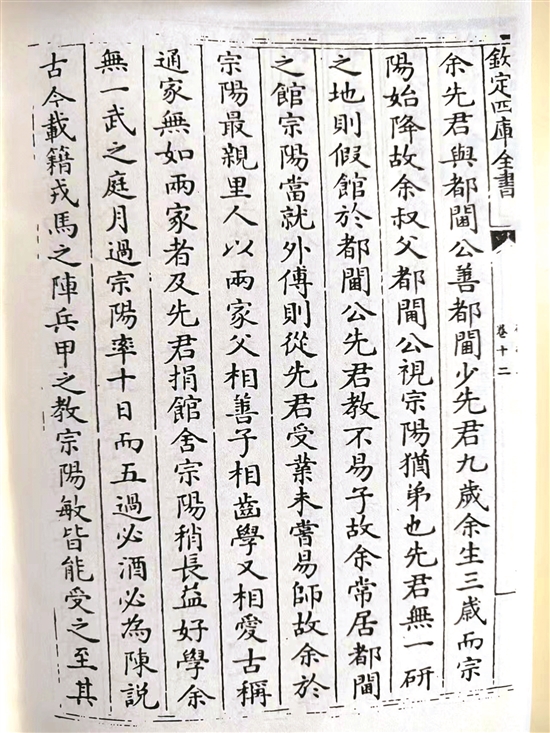 欽定四庫全書
卷十二
余先君與都閫公善都閫少先君九歲余生三歲而宗
陽始降故余叔父都閫公視宗陽猶弟也先君無一研
之地則假館於都閫公先君教不易子故余常居都閫
之館宗陽當就外傅則從先君受業未嘗易師故余於
宗陽最親里人以兩家父相善子相齒學又相愛古稱
通家無如兩家者及先君捐館舍宗陽稍長益好學余
無一武之庭月過宗陽率十日而五過必酒必為陳說
古今載籍戎馬之陣兵甲之教宗陽敏皆能受之至其